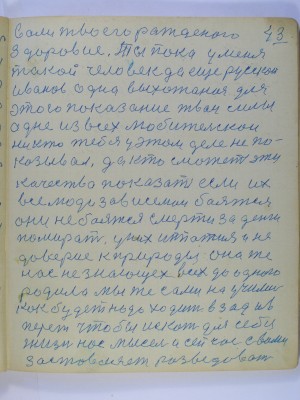 43
воли твоего рожденого
здоровие. Ты пока у меня
такой человек да еще русской
Иванов одна выхожаная для
этого показание твои силы
одне из всех любителской
никто тебя у этом деле не по-
казывал, да кто сможет эти
качества показать если их
все люди зависимои боятся
они не боятся смерти за денги
помират, у них
доверие к природы она же
нас не знающех всех до одного
родила мы же сами научили
как будет надо ходит взад и в
перет чтобы искат для себя
жизни нас мысел и сейчас с вами
заставляет разведоват